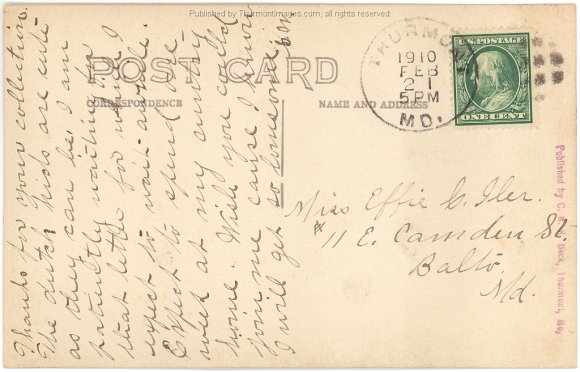 Published by ThurmontImages.com, all rights reserved
POST CARD
CORRESPONDENCE
NAME AND ADDRESS
THURMONT
1910
FEB
21
5 PM
MD.
U.S. POSTAGE
ONE CENT
Miss Effie C. Iler.
#11 E. Camden St.
Balto.
Md.
Thanks for your collection.
The dutch kids are cute
as they can be. I am
patiently waiting for
that letter for which I
expect to wait awhile.
Expect to spend the
week at my country
home. Wish you could
join me cause I know
I will get so lonesome
Published by Beck, Thurmont, Md.